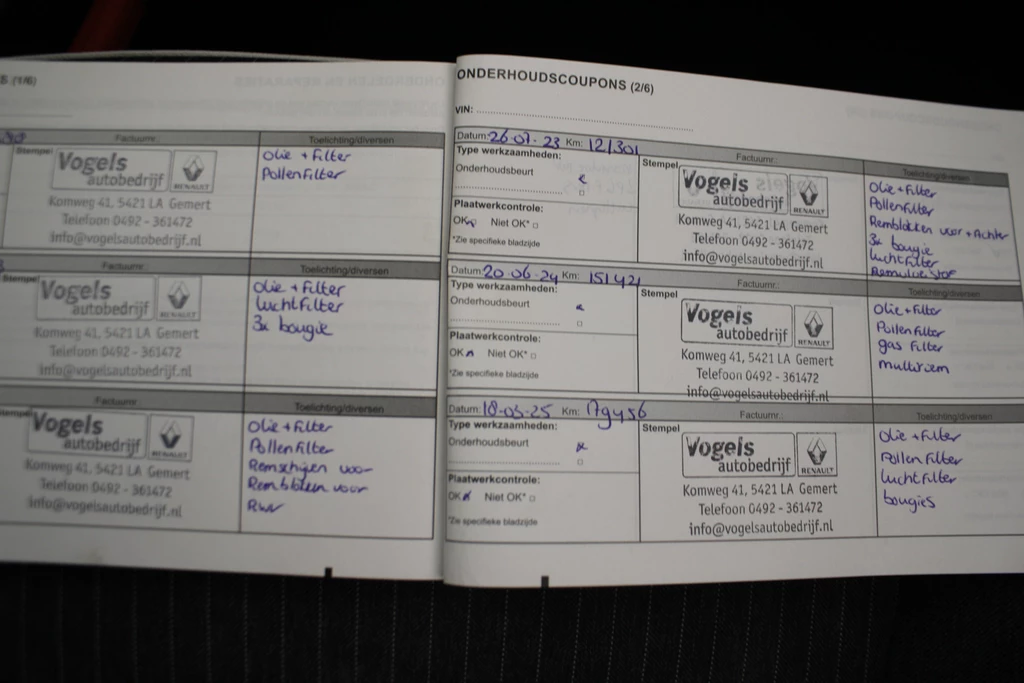 S (1/6)
Factuurnr.:
Toelichting/diversen
Stempel
Vogels
autobedrijf
RENAULT
Komweg 41, 5421 LA Gemert
Telefoon 0492 - 361472
info@vogelsautobedrijf.nl
Olie + Filter
Pollenfilter
Factuurnr.:
Toelichting/diversen
Stempel
Vogels
autobedrijf
RENAULT
Komweg 41, 5421 LA Gemert
Telefoon 0492 - 361472
info@vogelsautobedrijf.nl
Olie + Filter
Luchtfilter
3x bougie
Factuurnr.:
Toelichting/diversen
Stempel
Vogels
autobedrijf
RENAULT
Komweg 41, 5421 LA Gemert
Telefoon 0492 - 361472
info@vogelsautobedrijf.nl
Olie + Filter
Pollenfilter
Remschijven voor
Remblokken voor
ONDERHOUDSCOUPONS (2/6)
VIN:
Datum: 26-07-23 Km: 121301
Factuurnr.:
Toelichting/diversen
Type werkzaamheden:
Onderhoudsbeurt
Plaatwerkcontrole:
OK Niet OK*
*Zie specifieke bladzijde
Stempel
Vogels
autobedrijf
RENAULT
Komweg 41, 5421 LA Gemert
Telefoon 0492 - 361472
info@vogelsautobedrijf.nl
Olie + Filter
Pollenfilter
Remblokken voor + Achter
3x bougie
Luchtfilter
Remvloeistof
Datum: 20-06-24 Km: 151421
Factuurnr.:
Toelichting/diversen
Type werkzaamheden:
Onderhoudsbeurt
Plaatwerkcontrole:
OK Niet OK*
*Zie specifieke bladzijde
Stempel
Vogels
autobedrijf
RENAULT
Komweg 41, 5421 LA Gemert
Telefoon 0492 - 361472
info@vogelsautobedrijf.nl
Olie + Filter
Pollenfilter
gas Filter
multiriem
Datum: 18-03-25 Km:
Factuurnr.:
Toelichting/diversen
Type werkzaamheden:
Onderhoudsbeurt
Plaatwerkcontrole:
OK Niet OK*
*Zie specifieke bladzijde
Stempel
Vogels
autobedrijf
RENAULT
Komweg 41, 5421 LA Gemert
Telefoon 0492 - 361472
info@vogelsautobedrijf.nl
Olie + Filter
Pollenfilter
Luchtfilter
bougies